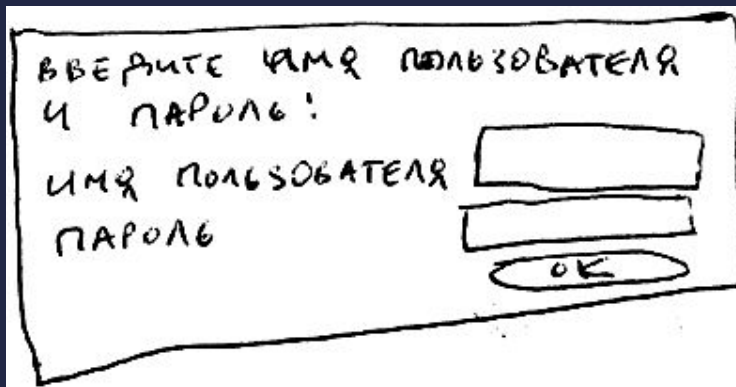 ВВЕДИТЕ ИМЯ ПОЛЬЗОВАТЕЛЯ
И ПАРОЛЬ:
ИМЯ ПОЛЬЗОВАТЕЛЯ
ПАРОЛЬ
ОК